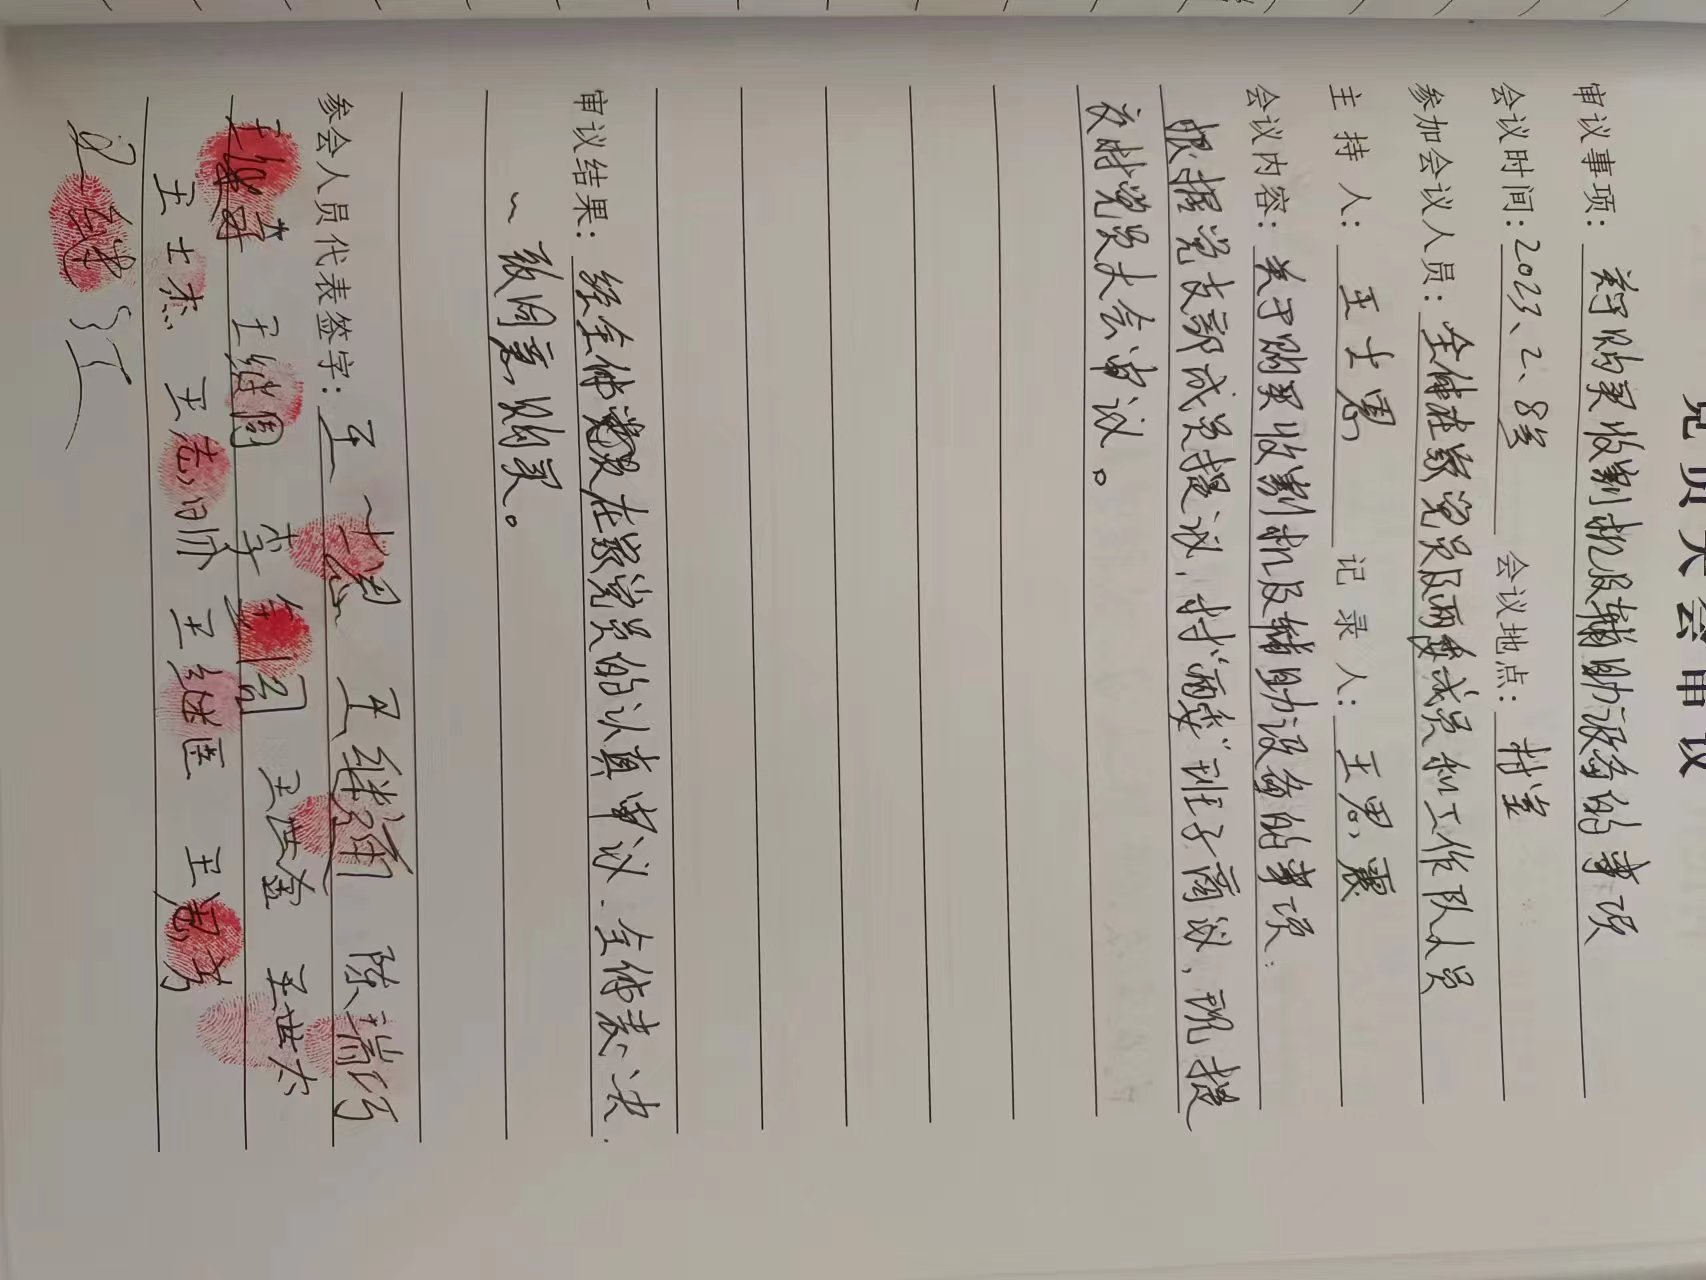 党员大会审议
审议事项: 关于购买收割机及辅助设备的事项
会议时间: 2023、2、8号 会议地点: 村室
参加会议人员: 全体在家党员及两委成员和工作队人员
主持人: 王士恩 记录人: 王思震
会议内容: 关于购买收割机及辅助设备的事项:
根据党支部成员提议，村"两委"班子商议，现提
交村党员大会审议。
审议结果: 经全体在家党员的认真审议、全体表决、
一致同意购买。
参会人员代表签字: 王士恩 王继通 陈瑞巧
王继 王继周 李金阁 王世金 王世太
王士杰 王志 王继医 王思芳
王继江